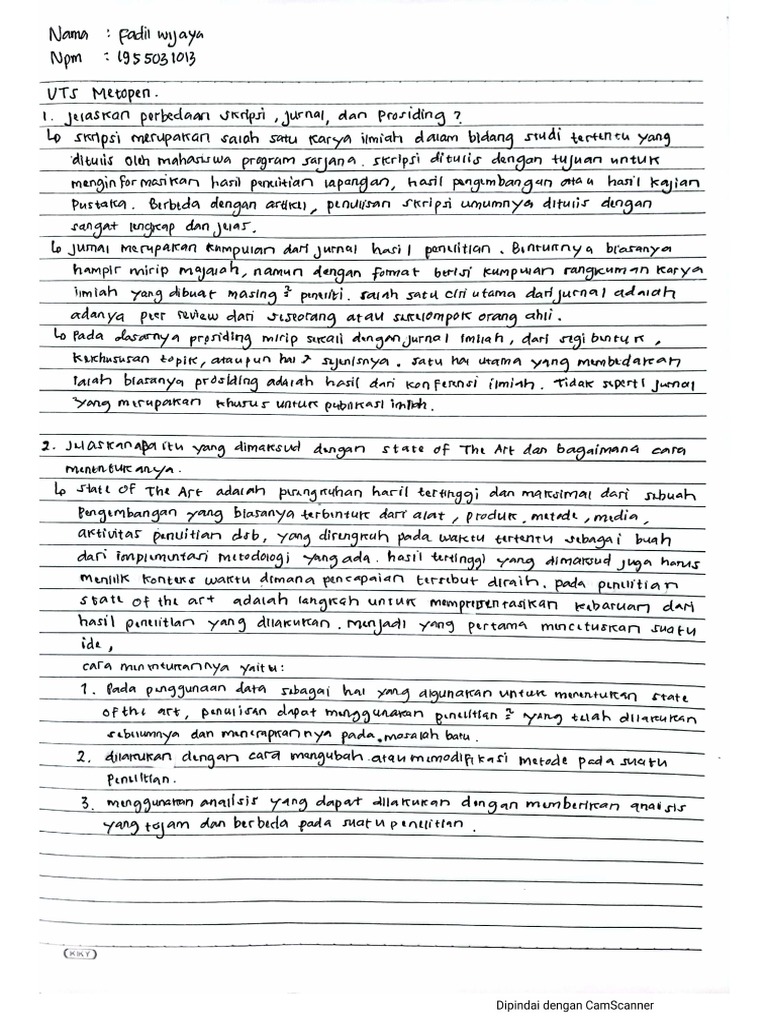 Nama : Fadil wijaya
Npm : 1955031013
UTS Metopen.
1. Jelaskan perbedaan skripsi, jurnal, dan Prosiding ?
↳ skripsi merupakan salah satu karya ilmiah dalam bidang studi tertentu yang
ditulis oleh mahasiswa program sarjana. skripsi ditulis dengan tujuan untuk
menginformasikan hasil penelitian lapangan, hasil pengembangan atau hasil kajian
pustaka. Berbeda dengan artikel, penulisan skripsi umumnya ditulis dengan
sangat lengkap dan jelas.
↳ Jurnal merupakan kumpulan dari jurnal hasil penelitian. Bentuknya biasanya
hampir mirip majalah, namun dengan format berisi kumpulan rangkuman karya
ilmiah yang dibuat masing² peneliti. salah satu ciri utama dari jurnal adalah
adanya peer review dari seseorang atau sekelompok orang ahli.
↳ Pada dasarnya prosiding mirip sekali dengan jurnal ilmiah, dari segi bentuk,
kekhususan topik, ataupun hal² sejenisnya. satu hal utama yang membedakan
ialah biasanya prosiding adalah hasil dari konferensi ilmiah. Tidak seperti jurnal
yang merupakan khusus untuk publikasi imlah.
2. Jelaskan apa itu yang dimaksud dengan state of The Art dan bagaimana cara
menentukanya.
↳ state of The Art adalah perengkuhan hasil tertinggi dan maksimal dari sebuah
Pengembangan yang biasanya terbentuk dari alat, produk, metode, media,
aktivitas penelitian dsb, yang direngkuh pada waktu tertentu sebagai buah
dari implementasi metodologi yang ada. hasil tertinggi yang dimaksud juga harus
menilik konteks waktu dimana pencapaian tersebut diraih. pada penelitian
state of the art adalah langkah untuk mempresentasikan kebaruan dari
hasil penelitian yang dilakukan. Menjadi yang pertama mencetuskan suatu
ide,
cara menentukannya yaitu:
1. Pada penggunaan data sebagai hal yang digunakan untuk menentukan state
of the art, penulisan dapat menggunakan penelitian² yang telah dilakukan
sebelumnya dan menerapkannya pada masalah baru.
2. dilakukan dengan cara mengubah atau memodifikasi metode pada suatu
penelitian.
3. menggunakan analisis yang dapat dilakukan dengan memberikan analisis
yang tajam dan berbeda pada suatu penelitian.
KKY
Dipindai dengan CamScanner